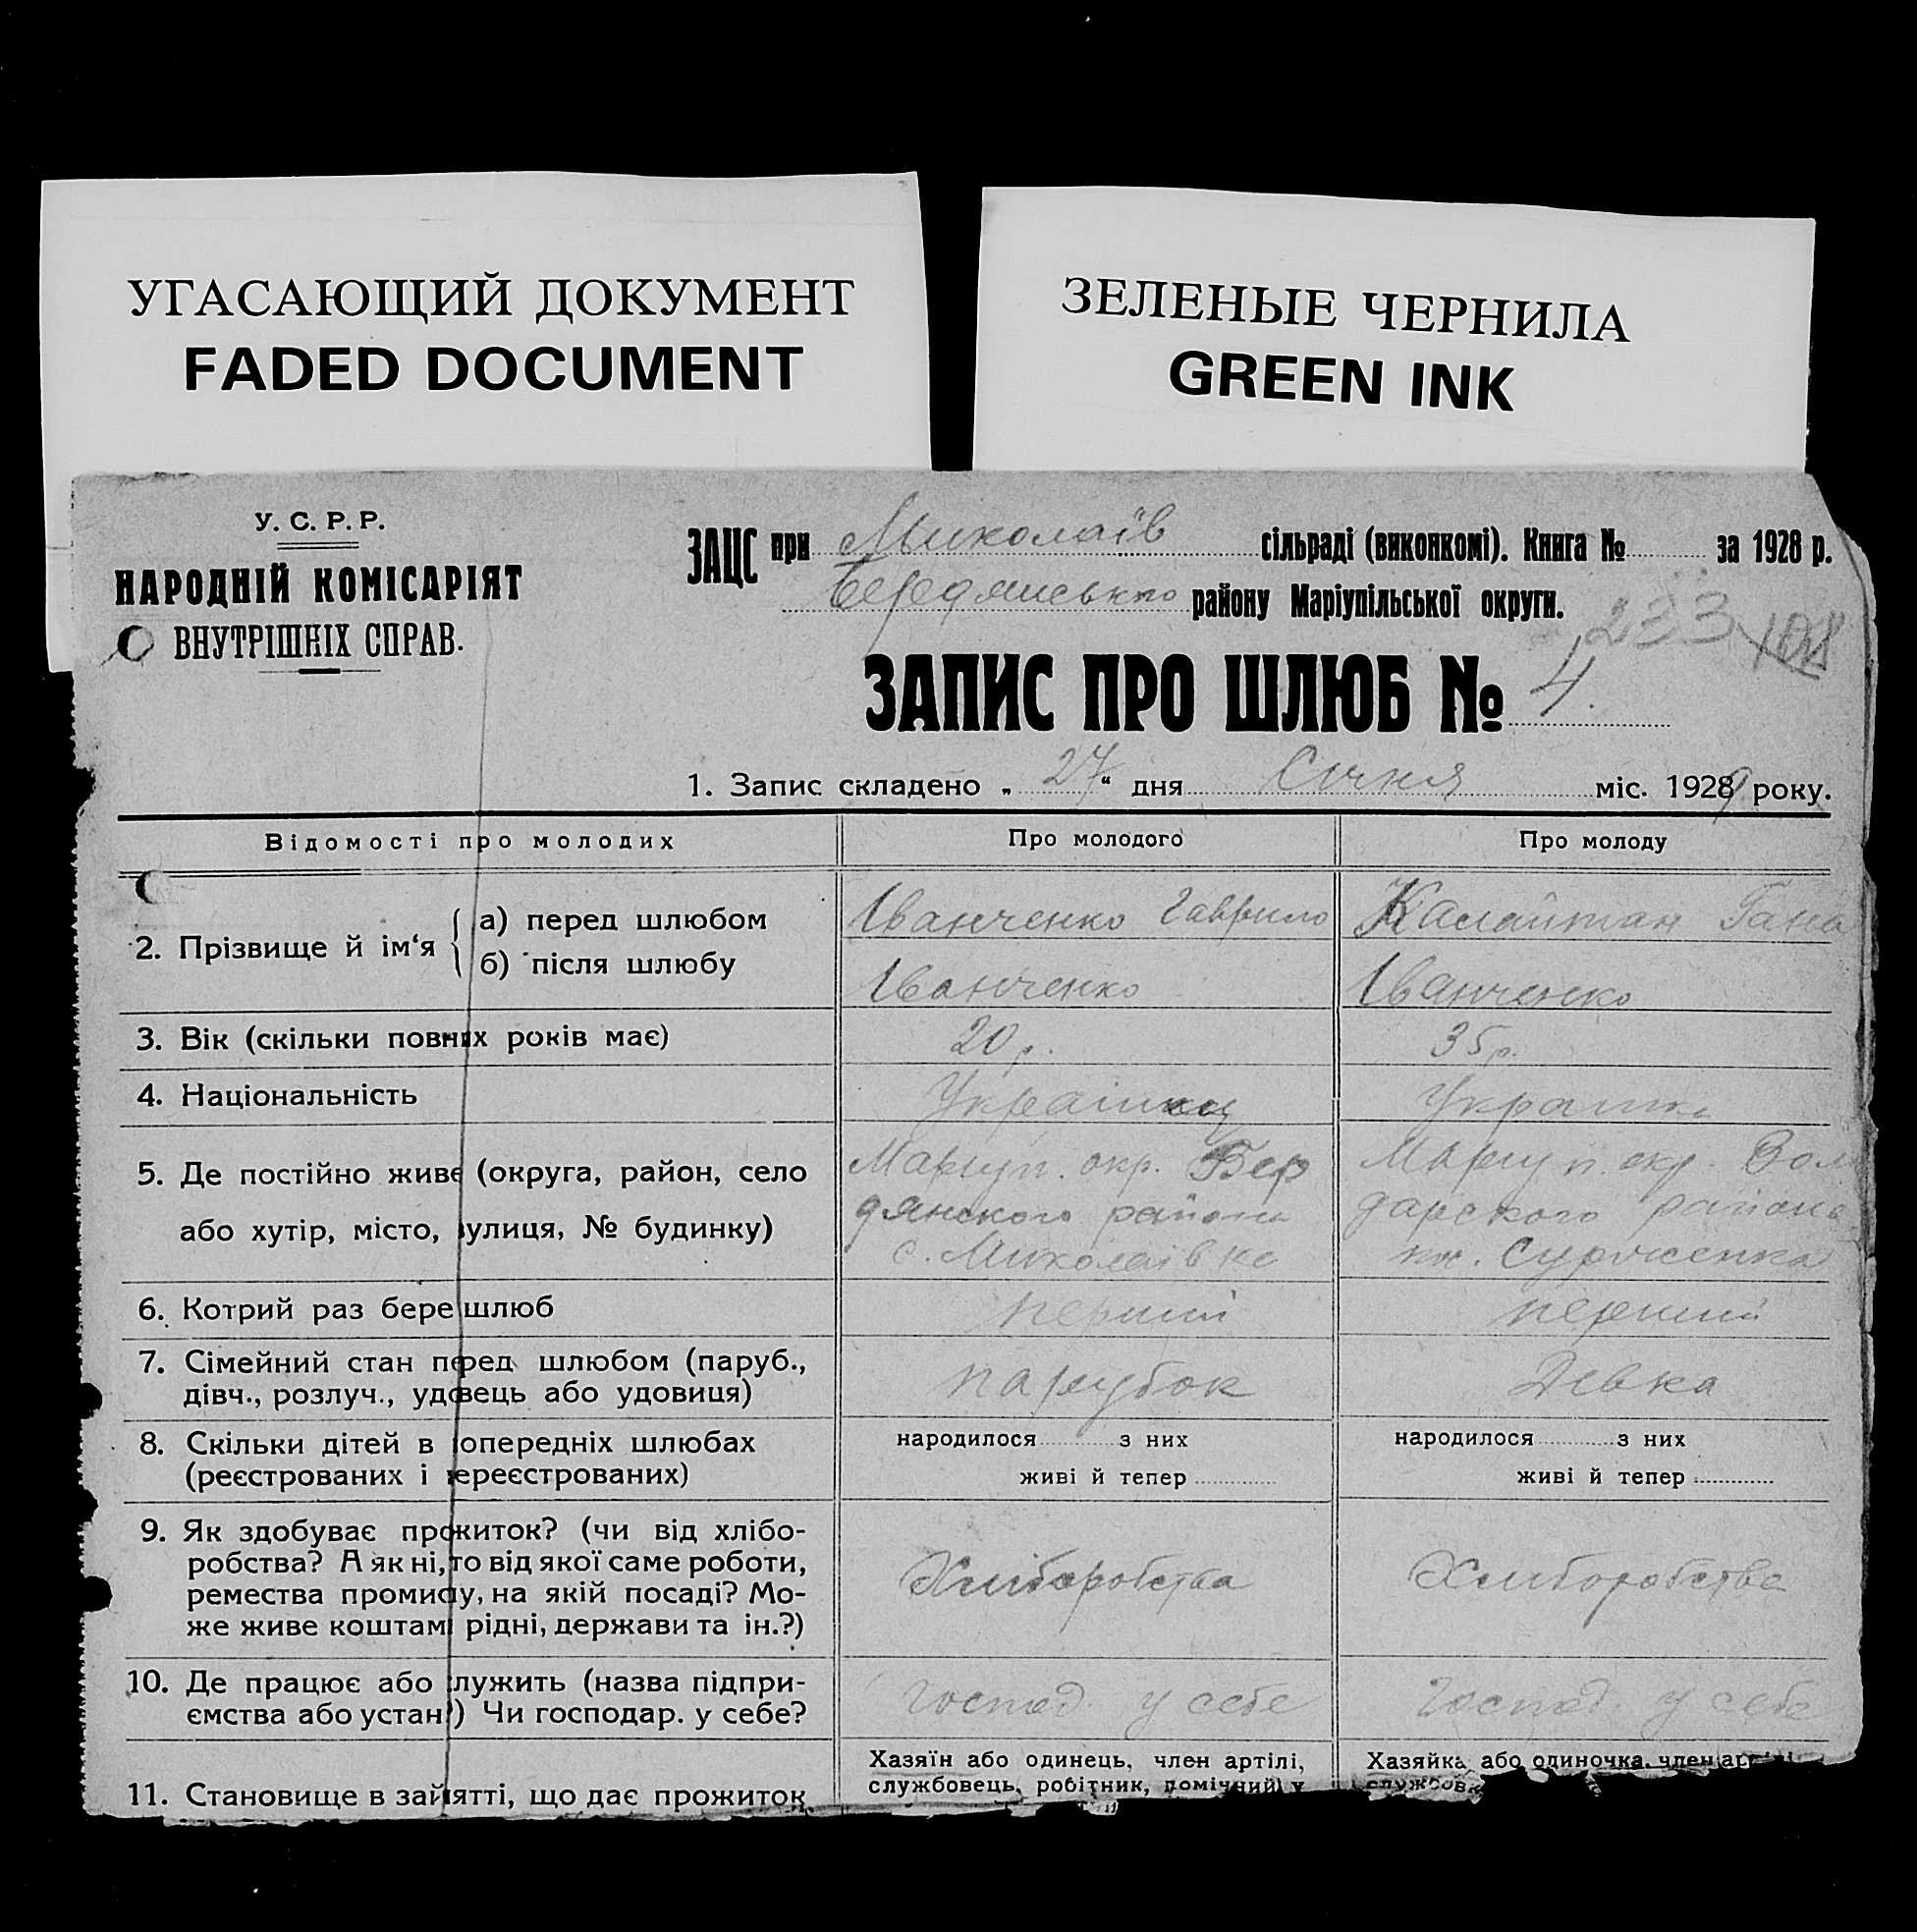 УГАСАЮЩИЙ ДОКУМЕНТ
FADED DOCUMENT
ЗЕЛЕНЫЕ ЧЕРНИЛА
GREEN INK
У. С. Р. Р.
НАРОДНІЙ КОМІСАРІЯТ
ВНУТРІШНІХ СПРАВ.
ЗАЦС при Миколаїв сільраді (виконкомі). Книга № за 1928 р.
Бердянсько району Маріупільської округи.
233 108
ЗАПИС ПРО ШЛЮБ № 4.
1. Запис складено „ 27 “ дня Січня міс. 1929 року.
Відомості про молодих Про молодого Про молоду
2. Прізвище й ім‘я а) перед шлюбом Іванченко Гаврило Калайтан Гана
б) після шлюбу Іванченко Іванченко
3. Вік (скільки повних років має) 20 р. 35 р.
4. Національність Українец Украинка
5. Де постійно живе (округа, район, село Мариуп. окр. Бер Мариуп. окр. Вол
або хутір, місто, вулиця, № будинку) дянского района дарского района
с. Миколаївке
6. Котрий раз бере шлюб перший перший
7. Сімейний стан перед шлюбом (паруб., парубок Девка
дівч., розлуч., удовець або удовиця)
8. Скільки дітей в попередніх шлюбах народилося з них народилося з них
(реєстрованих і нереєстрованих) живі й тепер живі й тепер
9. Як здобуває прожиток? (чи від хлібо-
робства? А як ні, то від якої саме роботи, Хлиборобства Хлиборобства
ремества промислу, на якій посаді? Мо-
же живе коштам рідні, держави та ін.?)
10. Де працює або служить (назва підпри- господ. у себе господ. у себе
ємства або устан.) Чи господар. у себе?
Хазяїн або одинець, член артілі, Хазяйка або одиночка, член артілі
11. Становище в занятті, що дає прожиток службовець, робітник, помічний у